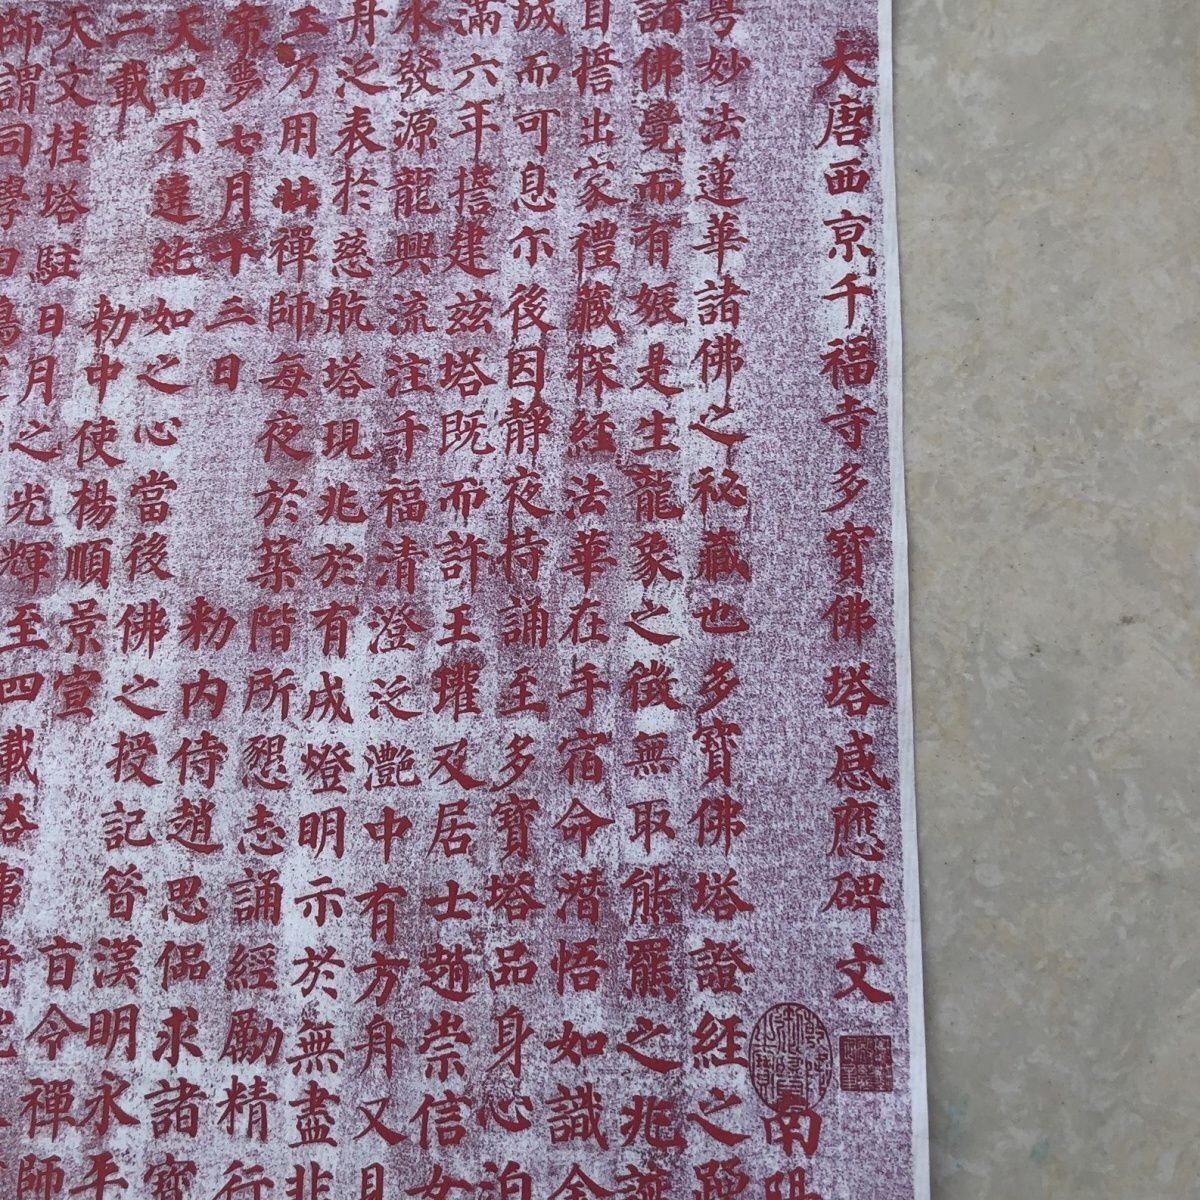 大唐西京千福寺多寶佛塔感應碑文
南陽
妙法蓮華諸佛之祕藏也多寶佛塔證經之踴
諸佛覺而有娠是生龍象之徵無取熊羆之兆誕
自誓出家禮藏探經法華在手宿命潛悟如識金
誠而可息尒後因靜夜持誦至多寶塔品身心泊
滿六年誓建茲塔既而許王瓘及居士趙崇信女
水發源龍興流注千福清澄泛灔中有方舟又見
舟泛表於慈航塔現兆於有成燈明示於無盡非
工乃用壯禪師每夜於築階所懇志誦經勵精行
帝夢七月十三日 勑內侍趙思侶求諸寶
天而不違純如之心當後佛之授記昔漢明永平
二載 勑中使楊順景宣旨令禪師
天文挂塔駐日月之光輝至四載塔事
師謂同學曰